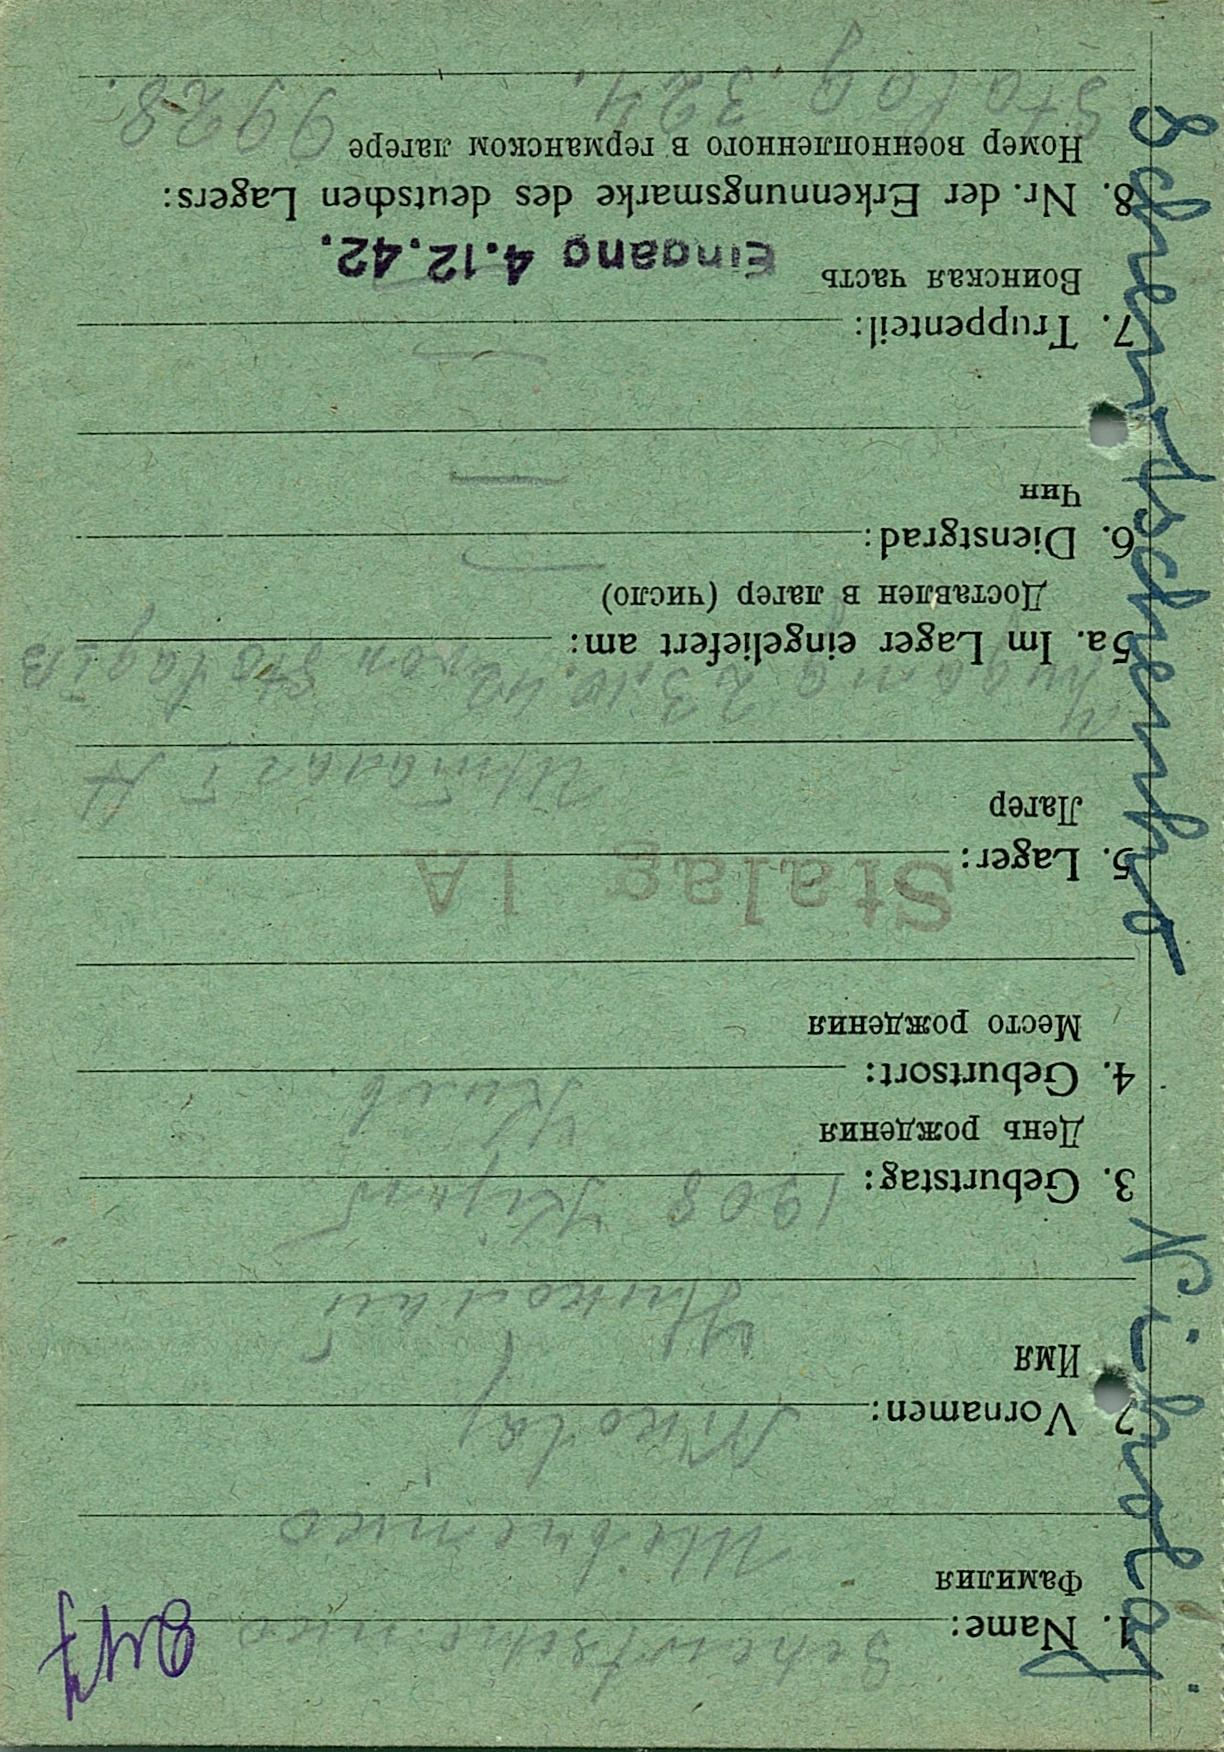 1. Name: Schewtschenko
Фамилия Шевченко
2. Vornamen: Nikolaj
Имя Николай
3. Geburtstag: 1908 Kijew
День рождения Киев
4. Geburtsort:
Место рождения
5. Lager: Stalag IA
Лагер Шталаг I A
Zugang 23.10.42 von Stalag IB
5a. Im Lager eingeliefert am:
Доставлен в лагер (число)
6. Dienstgrad: —
Чин —
7. Truppenteil: —
Воинская часть Eingang 4.12.42.
8. Nr. der Erkennungsmarke des deutschen Lagers:
Номер военнопленного в германском лагере
Stalag. 324. 9928.
Schewtschenko Nikolaj.